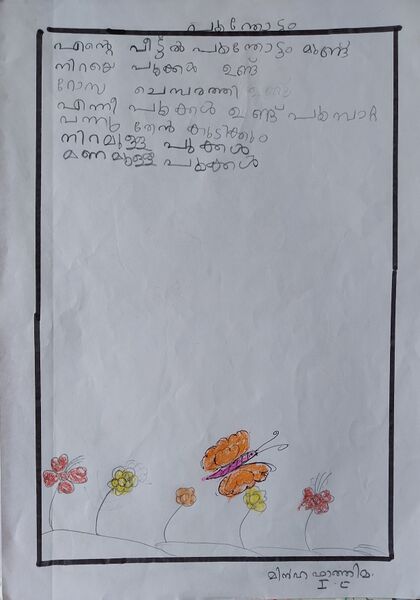 പൂന്തോട്ടം
എന്റെ വീട്ടിൽ പൂന്തോട്ടം മുണ്ട്
നിറയെ പൂക്കൾ ഉണ്ട്
റോസ ചെമ്പരത്തി
എന്നീ പൂക്കൾ ഉണ്ട് പൂമ്പാറ്റ
വന്നു തേൻ കുടിക്കും
നിറമുള്ള പൂക്കൾ
മണമുള്ള പൂക്കൾ
മിൻഹ ഫാത്തിമ.
I C